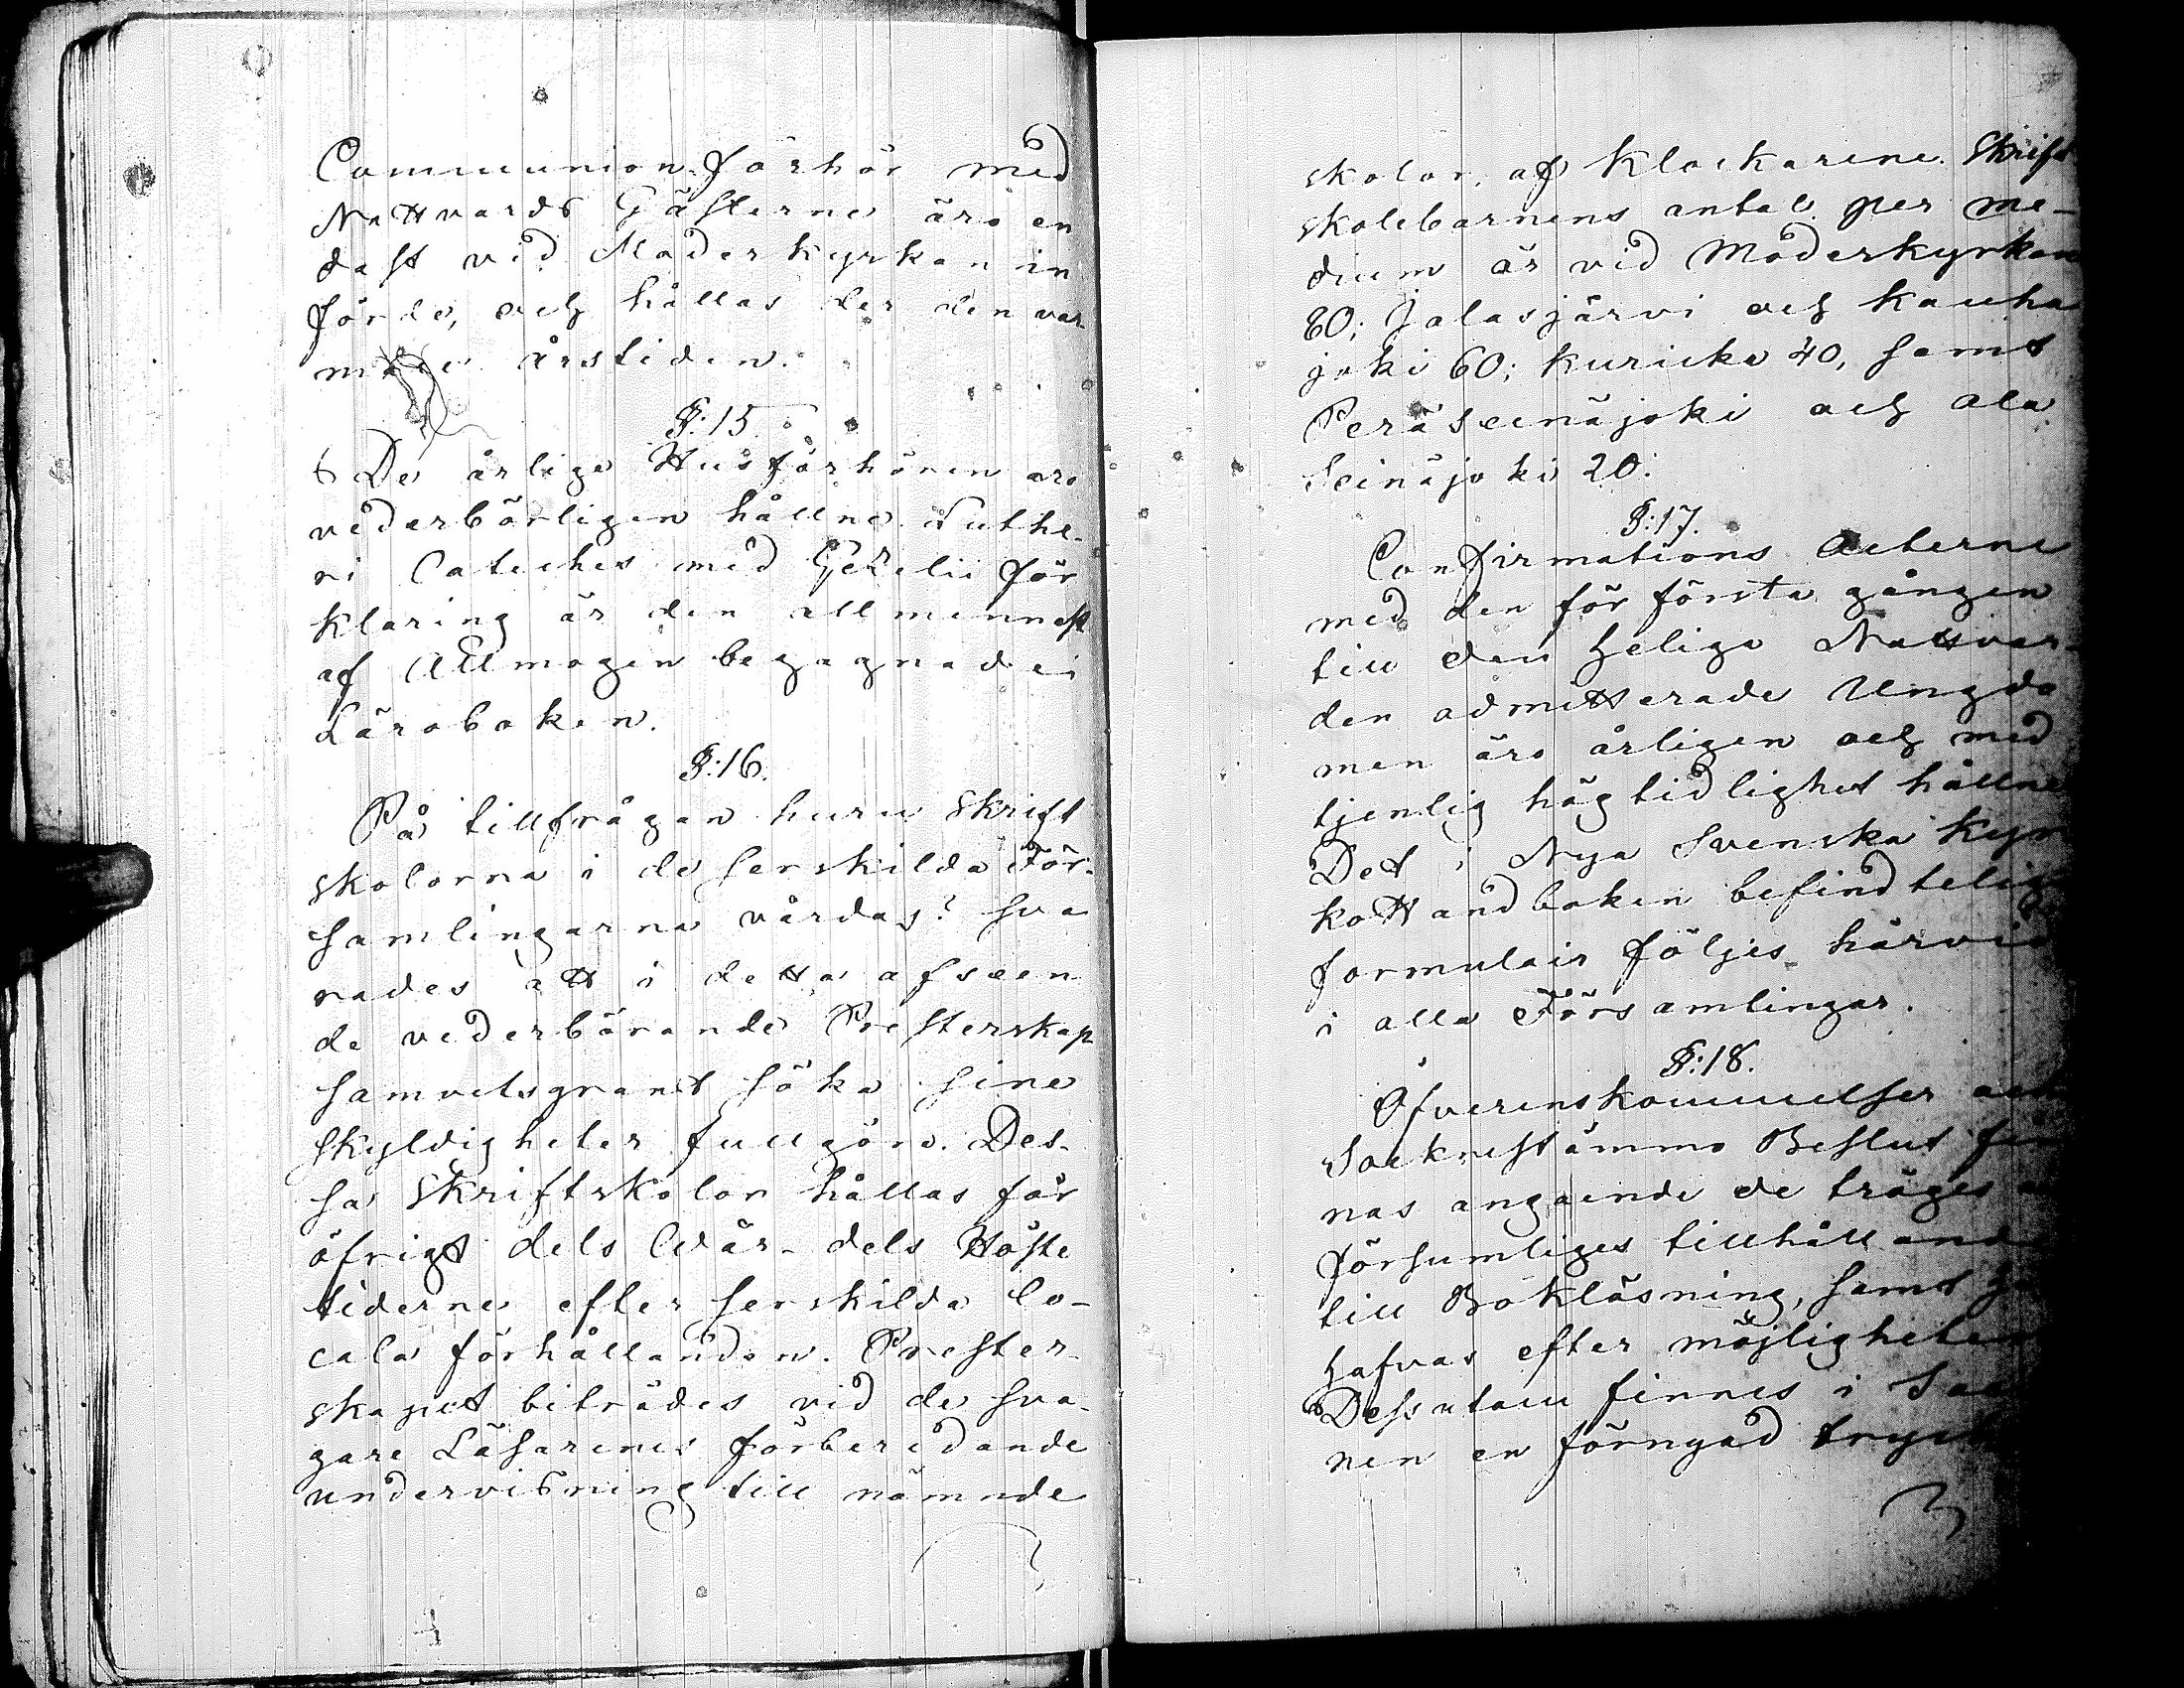 Communion förhör med
Nattvards Gästerne äro en
dast vid Moderkyrkan in
förde, och hållas der den var
mare årstiden.
§:15
De årlige Husförhören äro
vederbörligen hållne. Luthe-
ri Cateches med Gezelii för
klaring är den allmennast
af Allmogen begagnade
Läroboken.
§:16.
På tillfrågan huru Skrift
skolorna i de serskilda För-
samlingarna vårdas? sva
rades att i detta afseen
de vederbörande Presterskap
samvetsgrant söka sine
skyldigheter fullgöra. Des-
sa Skriftskolor hållas för
öfrigt dels Wår- dels Höste
tiderne efter serskilda lo-
cala förhållanden. Prester-
skapet biträdes vid de sva-
gare Läsarenes förberedande
undervisning till nämnde
skolor, af Klockarene. Skrift
skolebarnens antal per me-
dium är vid Moderkyrkan
80; Jalasjärvi och Kauha
joki 60; Kuricka 40, samt
Peräseinäjoki och Ala
Seinäjoki 20.
§:17.
Confirmations Acterne
med den för första gången
till den heliga Nattvar-
den admitterade Ungdo
men äro årligen och med
tjenlig högtidlighet hållne
Det i Nya Svenska Kyr
koHandboken befindtelig
formulair följes härvid
i alla Församlingar.
§:18.
Öfverenskommelser och
Socknestämmo Beslut fin
nas angående de trögas
försumliges tillhållande
till Bokläsning, samt
hafvas efter möjligheten
Dessutom finnes i Sock
nen en förnyad tryckt